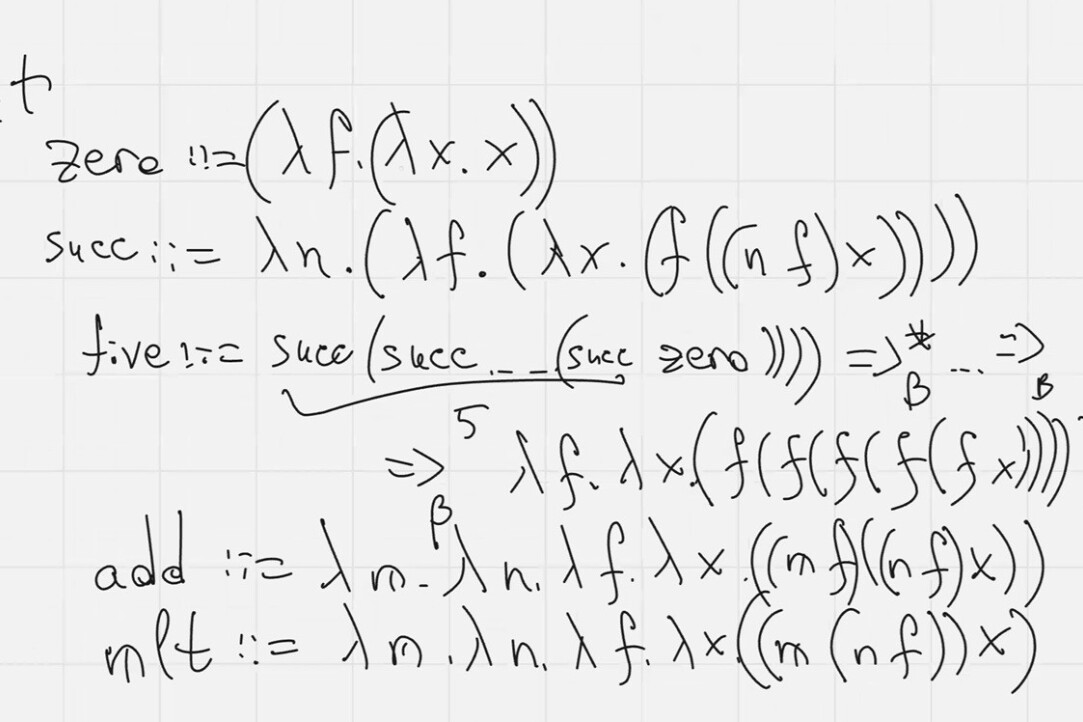 t
zero ::= (λf.(λx.x))
succ ::= λn.(λf.(λx.(f((n f)x))))
five ::= succ(succ...(succ zero)))) =>*β ... =>β
5
=>β λf.λx.(f(f(f(f(f x))))
add ::= λm.λn.λf.λx.((m f)((n f)x))
mlt ::= λm.λn.λf.λx.((m (n f))x)